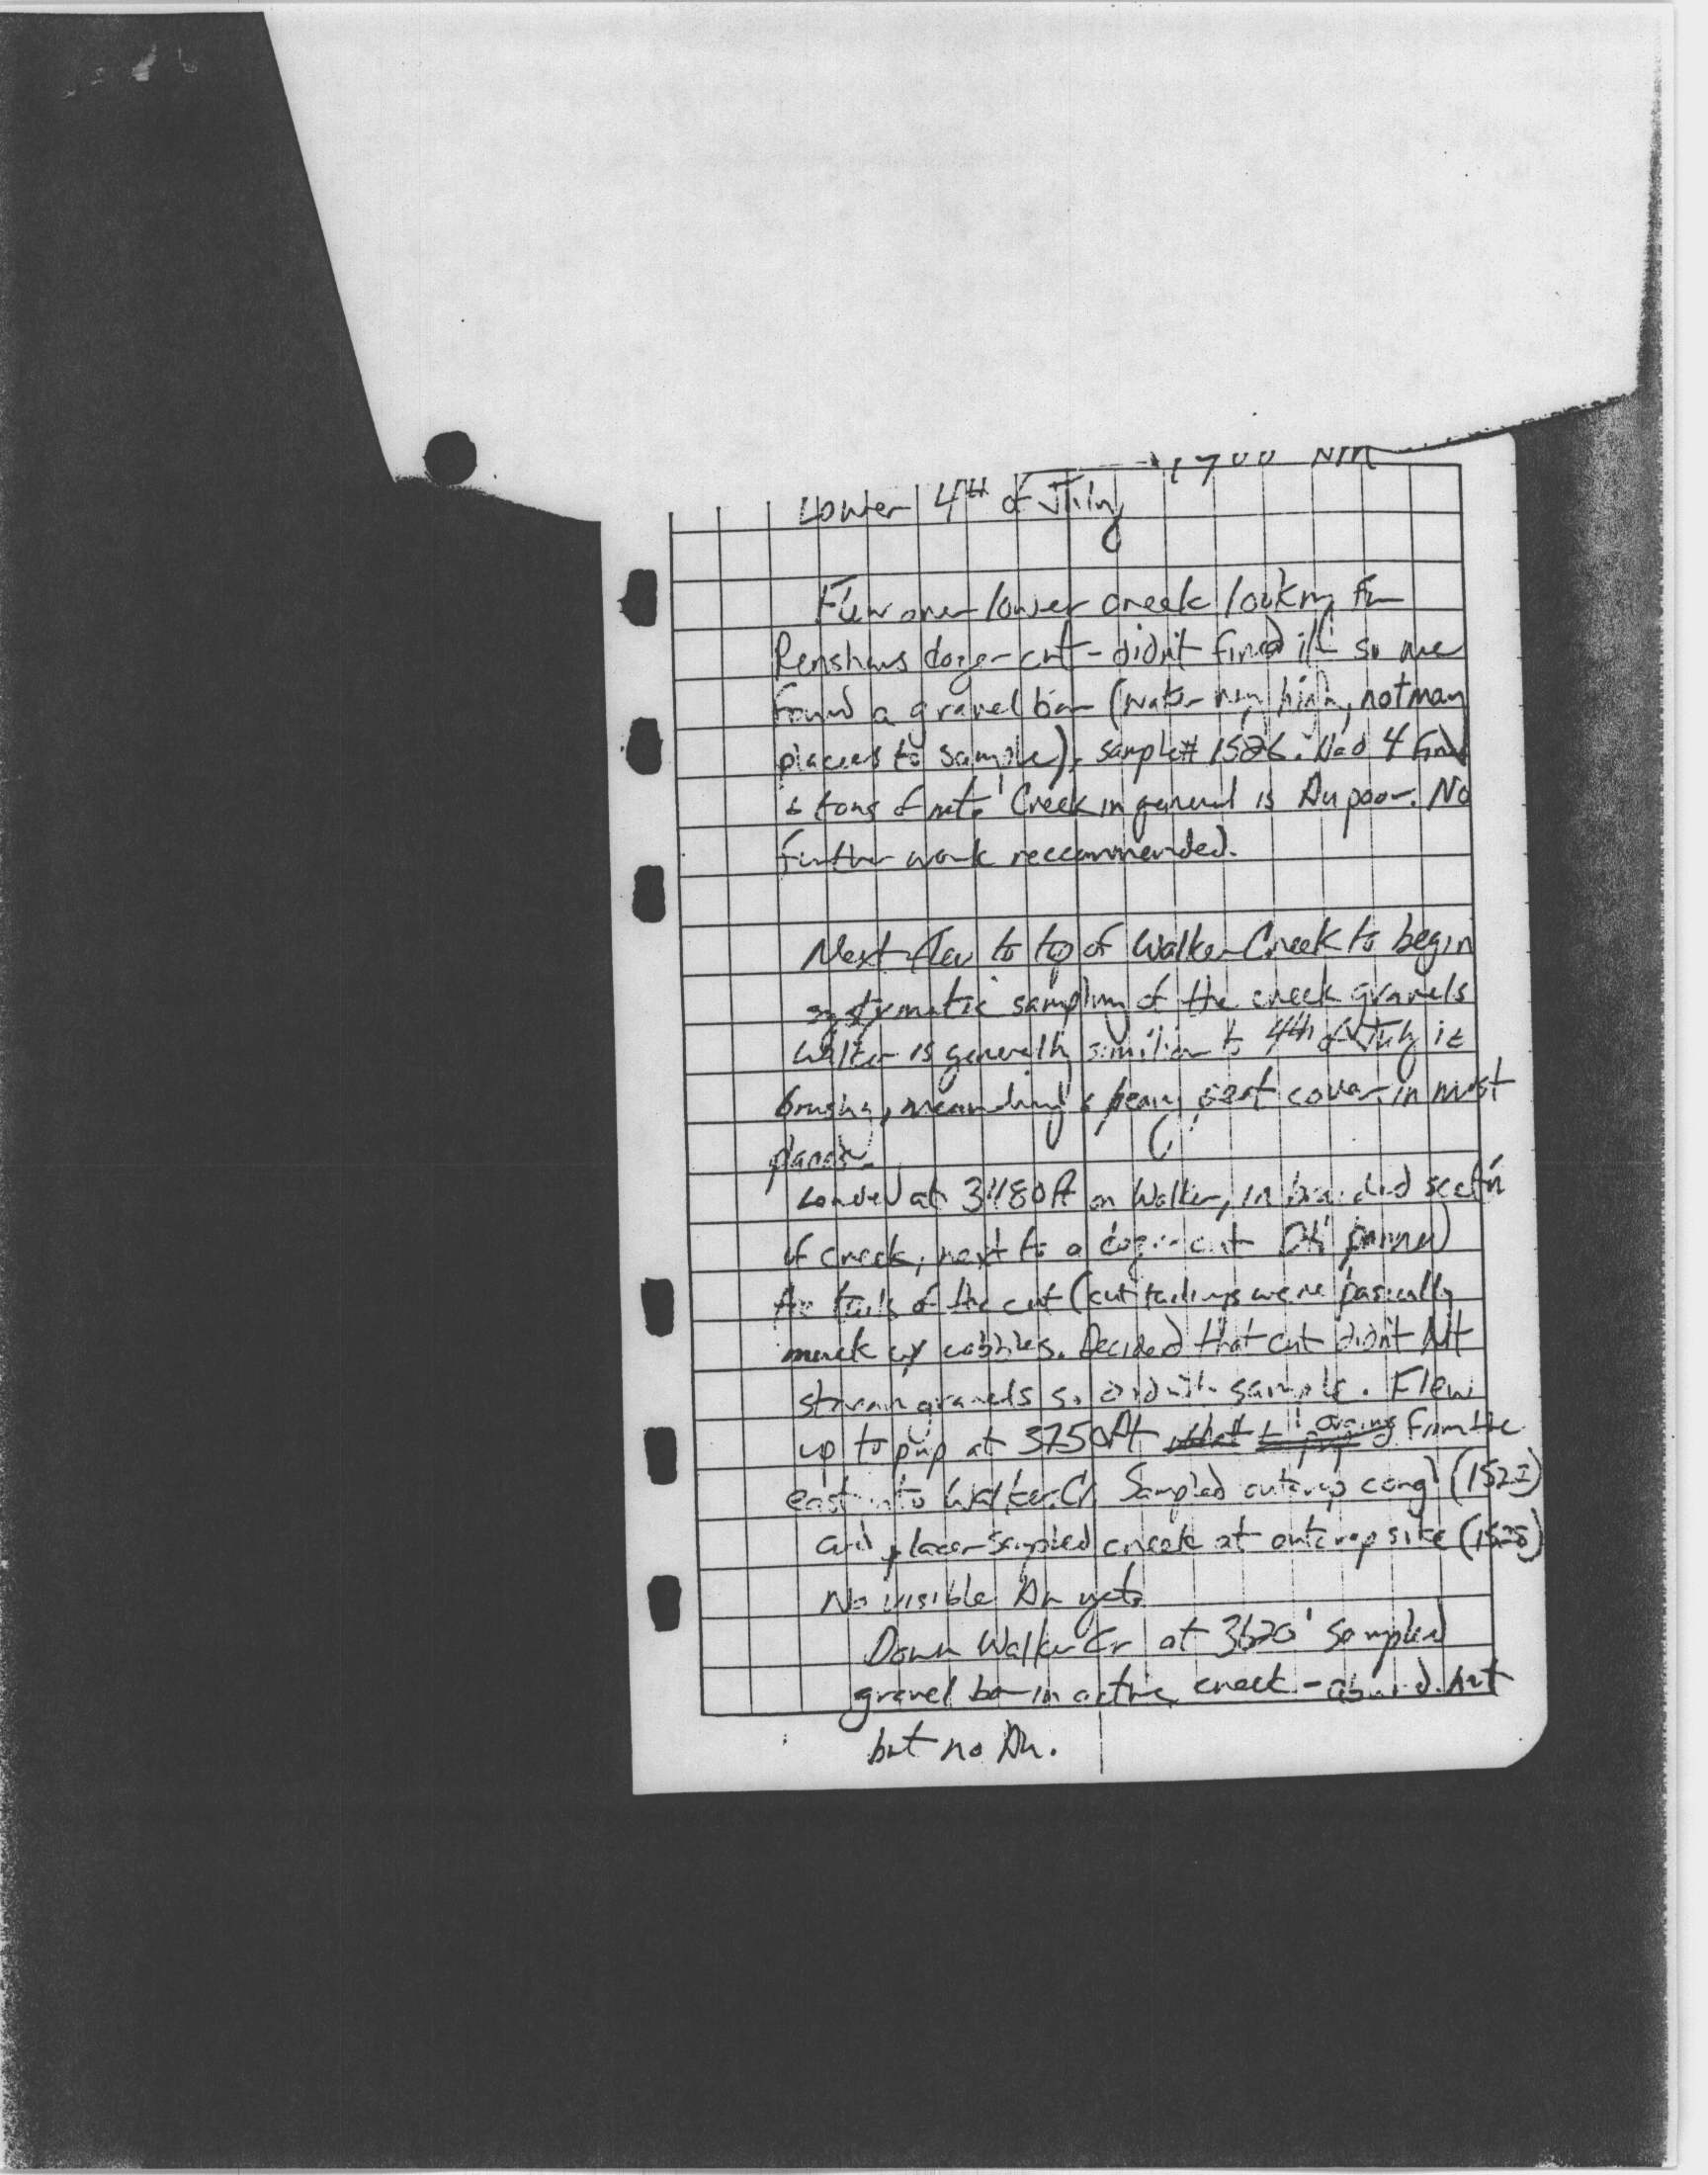 1,700 NM
Lower 4th of July
Flew over lower creek looking for
Renshaws dozer cut - didn't fined it so we
found a gravel bar (water very high, not many
places to sample), sample# 1526. Had 4 fines
& tons of mt. Creek in general is Au poor. No
further work reccommended.
Next flew to top of Walker Creek to begin
systematic sampling of the creek gravels
Walker is generally similiar to 4th of July ie
brushy, meandring & heavy peat cover in most
places.
Landed at 3480 ft on Walker, in braided sect'n
of creek, next to a dozer cut panned
the tails of the cut (cut tailings were basically
muck w/ cobbles. Decided that cut didn't hit
stream gravels so didn't sample. Flew
up to pup at 3750 ft from the
east into Walker Cr. Sampled outcrop cong (1527)
and placer sampled creek at outcrop site (1528)
No visible Au yet.
Down Walker Cr at 3620' sampled
gravel bar in active creek - abund. mt
but no Au.